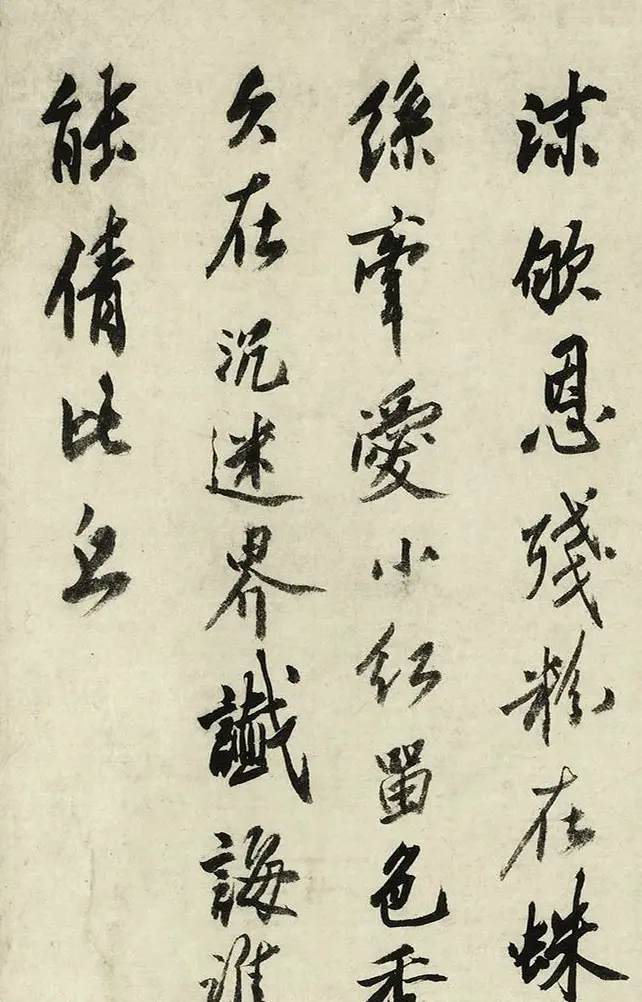 沫恩殘粉在蛛
絲牽愛小紅留色香
久在沉迷界懺誨誰
能倩比丘